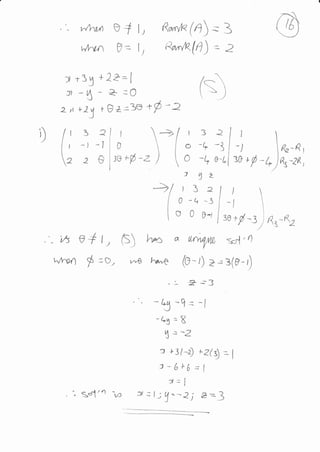 ∴ when θ ≠ 1, Rank(A) = 3
16
when θ = 1, Rank(A) = 2
x + 3y + 2z = 1
x - y - z = 0
(S)
2x + 2y + θz = 3θ + φ - 2
i) ( 1 3 2 | 1 ) → ( 1 3 2 | 1 )
( 1 -1 -1 | 0 ) ( 0 -4 -3 | -1 ) R₂-R₁
( 2 2 θ | 3θ+φ-2 ) ( 0 -4 θ-4 | 3θ+φ-4 ) R₃-2R₁
x y z
→ ( 1 3 2 | 1 )
( 0 -4 -3 | -1 )
( 0 0 θ-1 | 3θ+φ-3 ) R₃-R₂
∴ if θ ≠ 1, (S) has a unique sol-n
when φ = 0, we have (θ-1) z = 3(θ-1)
∴ z = 3
∴ -4y -9 = -1
-4y = 8
y = -2
x + 3(-2) + 2(3) = 1
x - 6 + 6 = 1
x = 1
∴ sol-n is x = 1; y = -2; z = 3